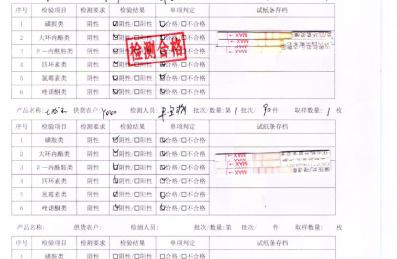 序号 检验项目 检测要求 检验结果 单项判定 试纸条存档
1 磺胺类 阴性 ☑阴性/☐阳性 ☑合格/☐不合格
2 大环内酯类 阴性 ☑阴性/☐阳性 ☑合格/☐不合格
3 β-内酰胺类 阴性 ☑阴性/☐阳性 ☑合格/☐不合格
4 四环素类 阴性 ☑阴性/☐阳性 ☑合格/☐不合格
5 氟霉素类 阴性 ☑阴性/☐阳性 ☑合格/☐不合格
6 喹诺酮类 阴性 ☑阴性/☐阳性 ☑合格/☐不合格
检测合格
MAX
产品名称: 供货农户: 检测人员: 批次/数量: 第1批次/90件 取样数量: 1 枚
序号 检验项目 检测要求 检验结果 单项判定 试纸条存档
1 磺胺类 阴性 ☑阴性/☐阳性 ☑合格/☐不合格
2 大环内酯类 阴性 ☑阴性/☐阳性 ☑合格/☐不合格
3 β-内酰胺类 阴性 ☑阴性/☐阳性 ☑合格/☐不合格
4 四环素类 阴性 ☑阴性/☐阳性 ☑合格/☐不合格
5 氟霉素类 阴性 ☑阴性/☐阳性 ☑合格/☐不合格
6 喹诺酮类 阴性 ☑阴性/☐阳性 ☑合格/☐不合格
MAX
产品名称: 供货农户: 检测人员: 批次/数量: 第 批次/ 件 取样数量: 枚
序号 检验项目 检测要求 检验结果 单项判定 试纸条存档
1 磺胺类 阴性 ☐阴性/☐阳性 ☐合格/☐不合格